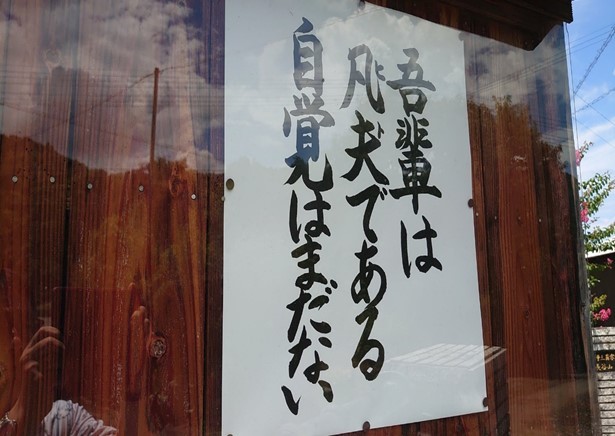 吾輩は
凡夫である
自覚はまだない